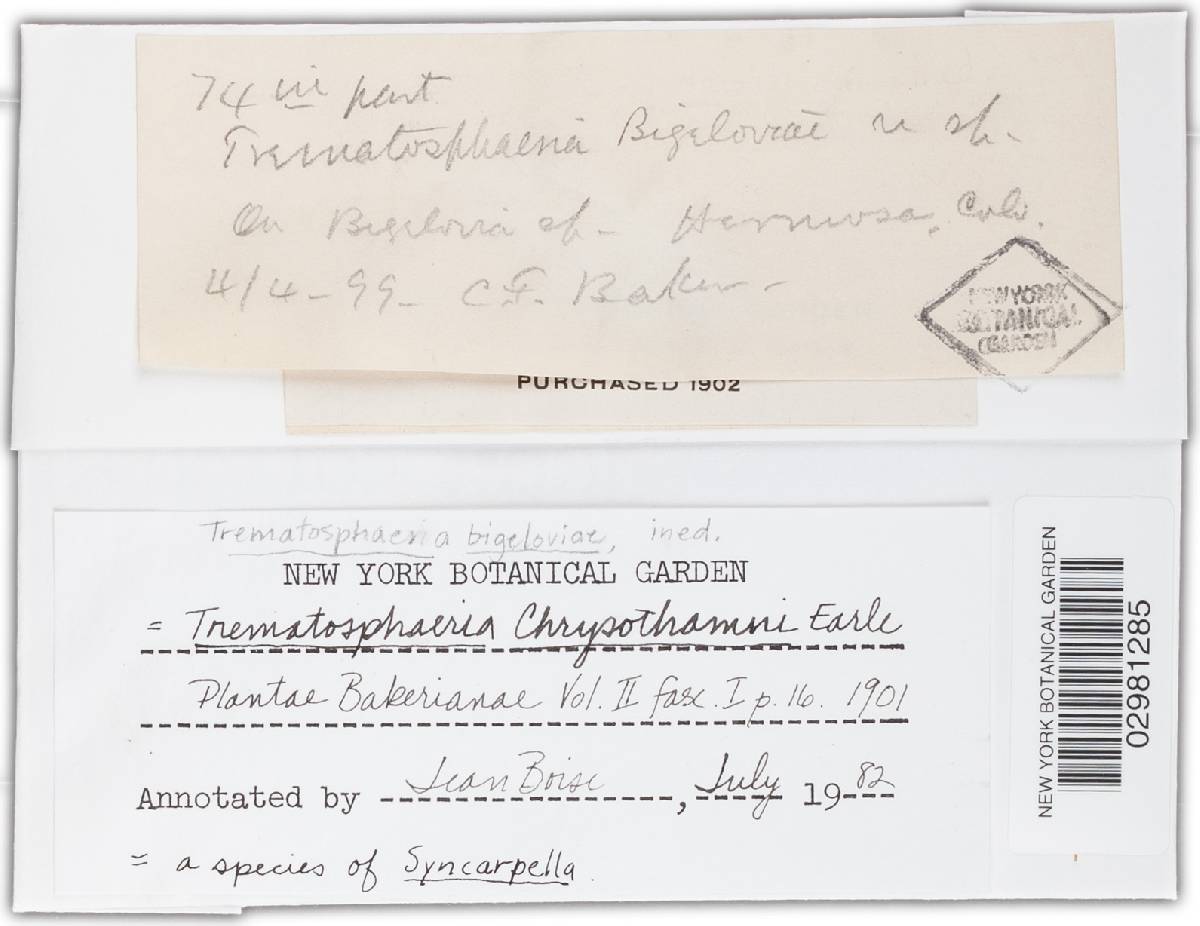 74 in part
Trematosphaeria Bigeloviae n sp-
On Bigelovia sp- Hermosa, Colo.
4/4-99- C.F. Baker-
NEW YORK
BOTANICAL
GARDEN
PURCHASED 1902
Trematosphaeria bigeloviae, ined.
NEW YORK BOTANICAL GARDEN
= Trematosphaeria Chrysothamni Earle
Plantae Bakerianae Vol. II fasc. I p. 16. 1901
Annotated by Jean Boise, July 1982
= a species of Syncarpella
NEW YORK BOTANICAL GARDEN
02981285